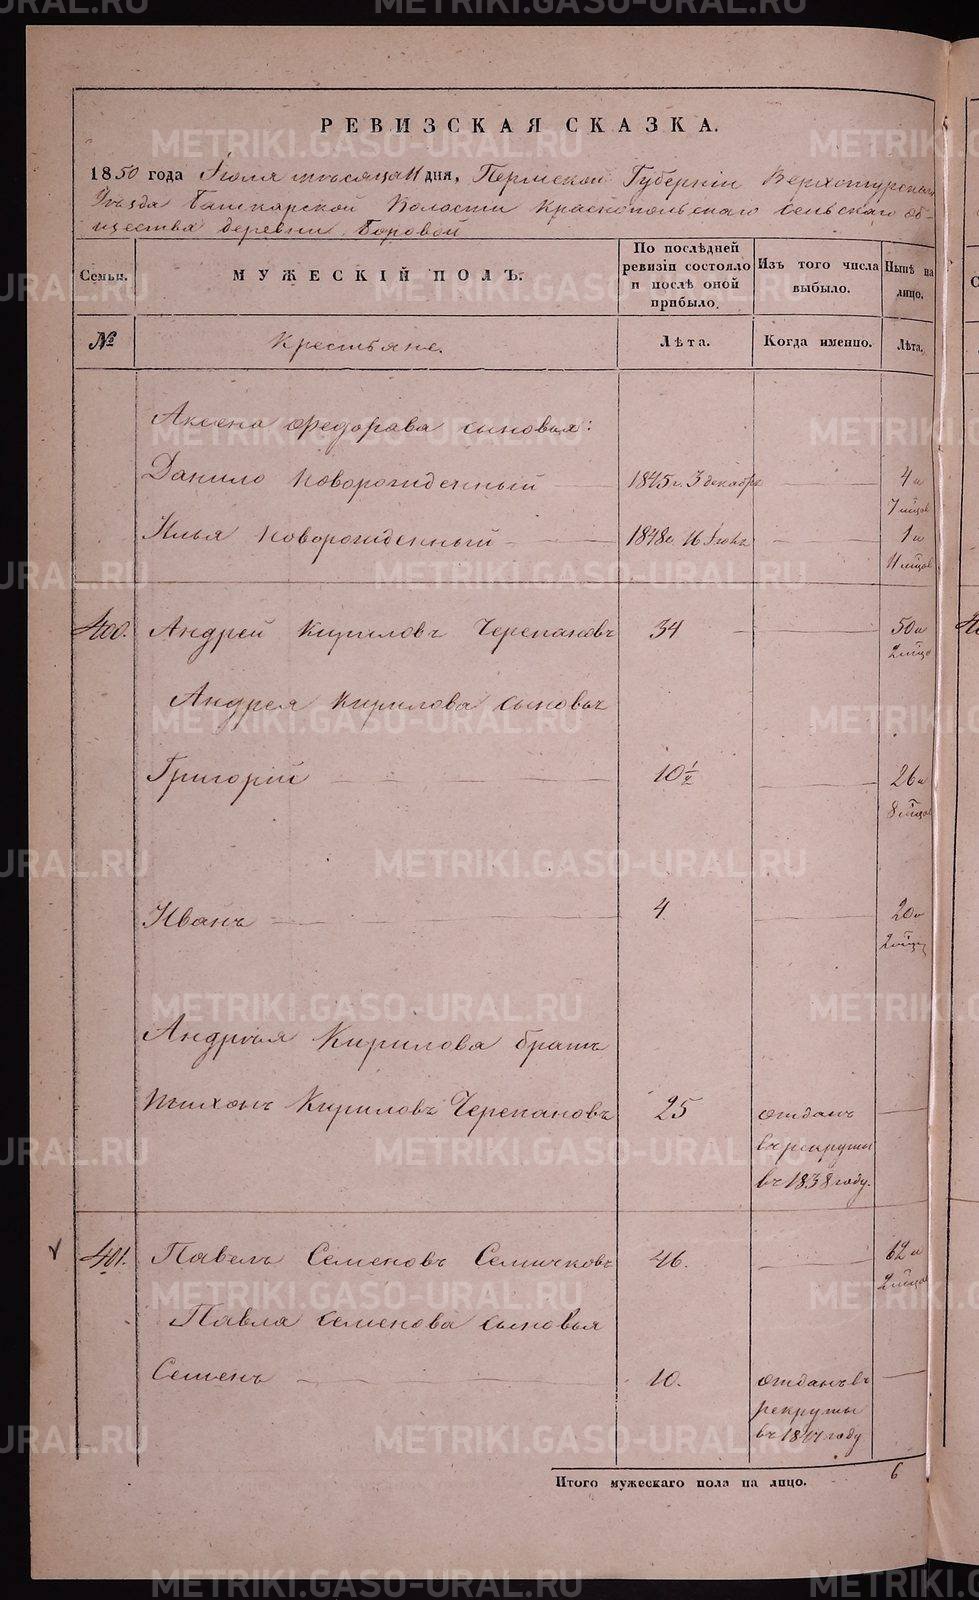 METRIKI.GASO-URAL.RU
РЕВИЗСКАЯ СКАЗКА.
1850 года Июля мѣсяца 11 дня, Пермской Губерніи Верхотурскаго
Уѣзда Башкарской Волости Краснопольскаго сельскаго об-
щества деревни Боровой
Семьи. МУЖЕСКІЙ ПОЛЪ. По послѣдней ревизіи состояло и послѣ оной прибыло. Изъ того числа выбыло. Нынѣ на лицо.
№ Крестьяне. Лѣта. Когда именно. Лѣта.
Аксена Федорова сыновья:
Данило новорожденный 1845 г. 3 декабря 4 и
7 мѣсяц
Илья новорожденный 1848 г. 16 Іюля 1 и
11 мѣсяц
400. Андрей Кириловъ Черепановъ 34 50 и
2 мѣсяц
Андрея Кирилова сыновья
Григорій 10 1/2 26 и
8 мѣсяц
Иванъ 4 20 и
2 мѣсяц
Андрея Кирилова братъ
Тихонъ Кириловъ Черепановъ 25 отданъ
въ рекруты
въ 1838 году.
401. Павелъ Семеновъ Семичковъ 46. 62 и
2 мѣсяц
Павла Семенова сыновья
Семенъ 10. отданъ въ
рекруты
въ 1844 году
Итого мужескаго пола на лицо. 6